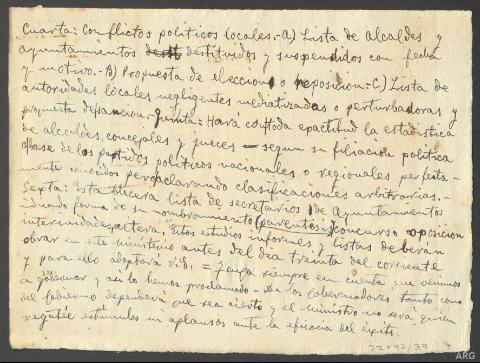 Cuarta: Conflictos políticos locales.- A) Lista de alcaldes y
ayuntamientos destituidos y suspendidos con fecha
y motivo.- B) Propuesta de eleccion o reposicion.- C) Lista de
autoridades locales negligentes mediatizadas o perturbadoras y
propuesta de sancion.- Quinta: Hará con toda exactitud la estadística
de alcaldes, concejales y jueces — segun su filiacion política
a base de los partidos políticos nacionales o regionales perfecta-
mente conocidos pero aclarando clasificaciones arbitrarias.-
Septa: Esta tercera lista de secretarios de Ayuntamientos
indicando forma de su nombramiento (parentesis) concurso oposicion
interinidad etcetera. Estos estudios informes y listas deberán
obrar en este Ministerio antes del dia treinta del corriente
y para ello adoptará V.E. = Tenga siempre en cuenta que venimos
a gobernar y asi lo hemos proclamado - De los gobernadores tanto como
del Gobierno dependerá que sea cierto y el ministro no será quien
regatée estimulos ni aplausos ante la eficacia del éxito.
ARG